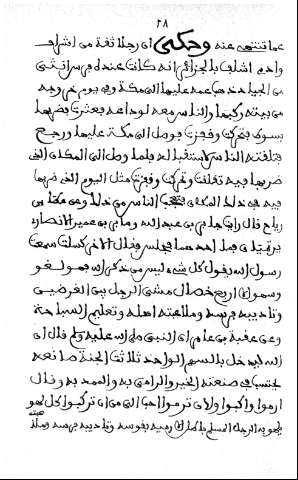 ٢٨
عما تنتهي عنه وحكي ان رجلا ثقة من اشراف
وادم اشلف بالجزائر انه كانت عنده فرس انثى
من الجياد ذهب عمه عليها الى مكة وفي يوم خروجه
من بيته ركبها والناس معه لوداعه بعثرت بضربها
بسوط بتحركت وقفزت بوصل الى مكة عليها ورجع
بتلقته الناس لاستقباله فلما وصل الى المكان الذي
ضربها فيه تفلتت وتحركت وقفزت مثل اليوم الذي ضربها
فيه في ذلك المكان بتعجب الناس من ذلك وعن عطاء بن
رباح قال رايت جابر بن عبد الله وجابر بن عمير الانصاري
يرميان فمل احدهما فجلس فقال الاخر كسلت سمعت
رسول الله يقول كل شيء ليس من ذكر الله فهو لغو
وسهو الا اربع خصال مشي الرجل بين الغرضين
وتاديبه فرسه وملاعبته اهله وتعليم السباحة
وعن عقبة بن عامر ان النبي صلى الله عليه وسلم قال ان
الله ليدخل بالسهم الواحد ثلاثة الجنة صانعه
يحتسب في صنعته الخير والرامي به والممد به وقال
ارموا واركبوا ولان ترموا احب الي من ان تركبوا كل لهو
يلهو به الرجل المسلم باطل الا رميه بقوسه وتاديبه فرسه وملاعبته